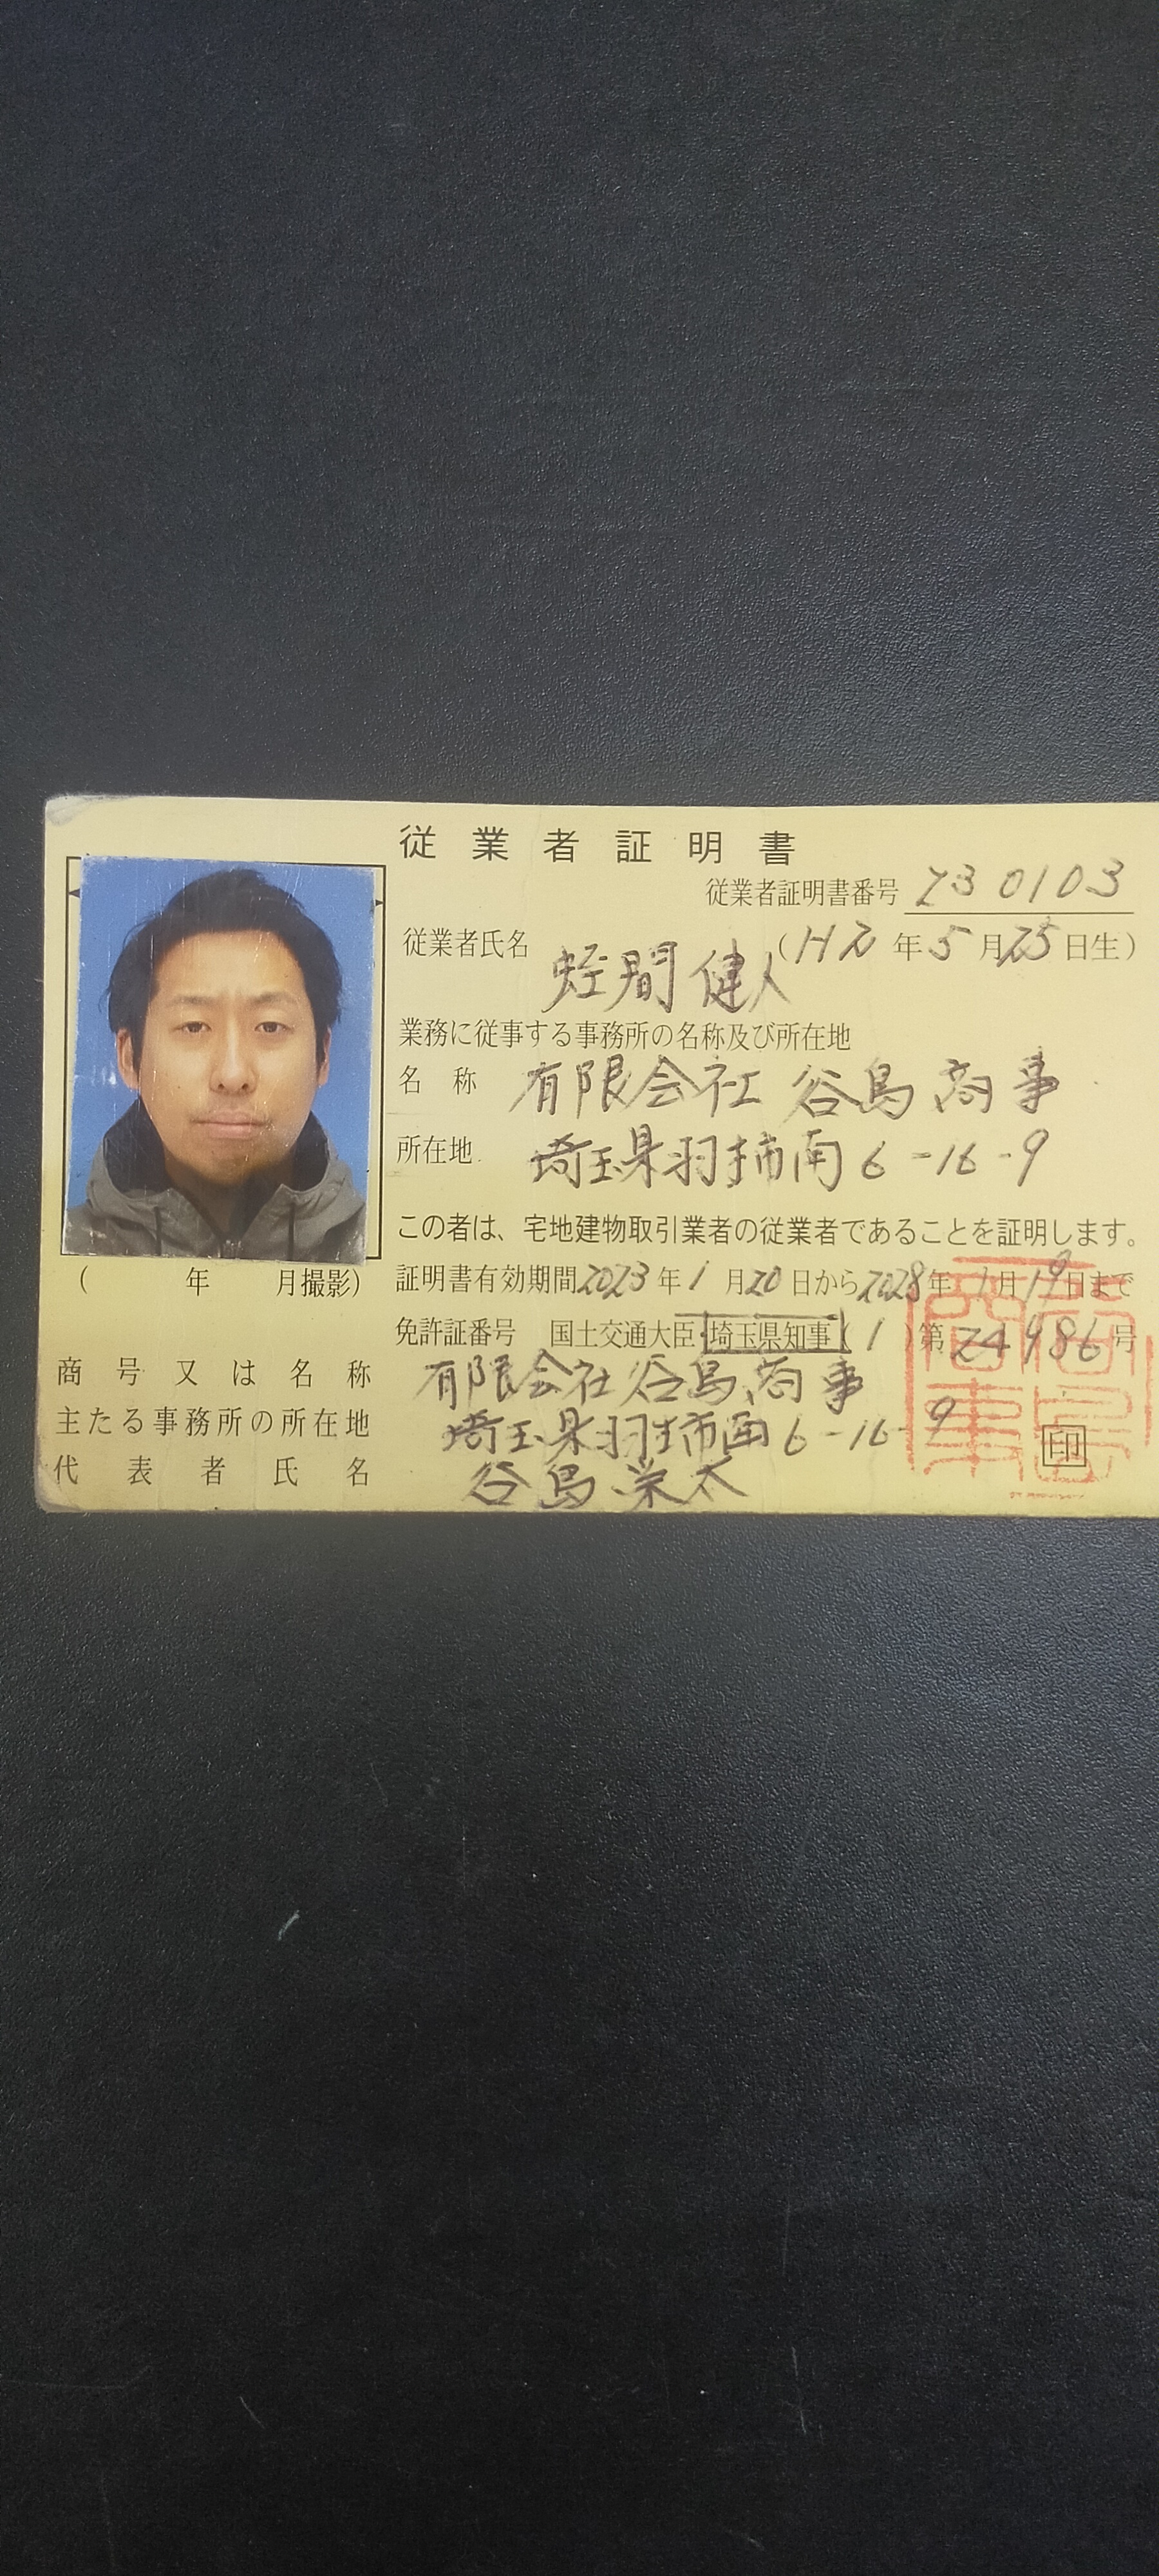 従業者証明書
従業者証明書番号 230103
従業者氏名 蛭間健人 (H元年5月25日生)
業務に従事する事務所の名称及び所在地
名称 有限会社谷島商事
所在地 埼玉県羽生市南6-16-9
この者は、宅地建物取引業者の従業者であることを証明します。
(年 月撮影)
証明書有効期間2023年1月20日から2028年1月19日まで
免許証番号 国土交通大臣 埼玉県知事(1)第24986号
商号又は名称 有限会社谷島商事
主たる事務所の所在地 埼玉県羽生市南6-16-9
代表者氏名 谷島栄太
印